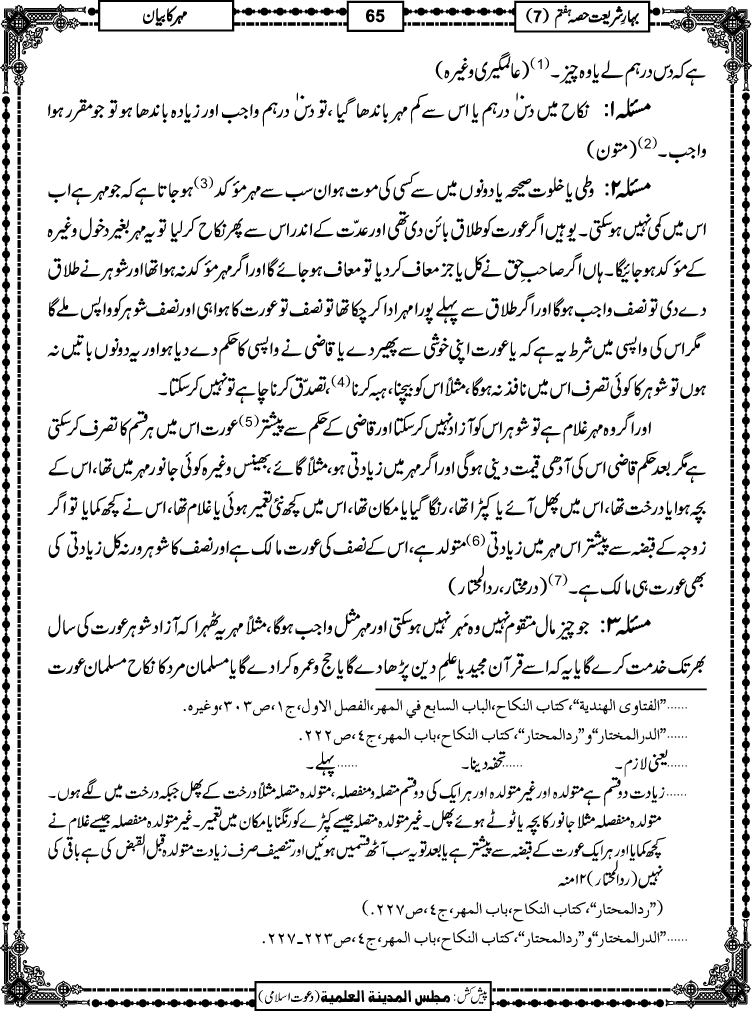 بہارِ شریعت حصہ ہفتم (7)
65
مہر کا بیان
ہے کہ دس درہم لے یا وہ چیز ۔ (1) (عالمگیری وغیرہ)
مسئلہ ۱: نکاح میں دسؔ درہم یا اس سے کم مہر باندھا گیا ، تو دسؔ درہم واجب اور زیادہ باندھا ہو تو جو مقرر ہوا
واجب ۔ (2) (متون)
مسئلہ ۲: وطی یا خلوت صحیحہ یا دونوں میں سے کسی کی موت ہو ان سب سے مہر مؤکد (3) ہو جاتا ہے کہ جو مہر ہے اب
اس میں کمی نہیں ہوسکتی ۔ یوہیں اگر عورت کو طلاق بائن دی تھی اور عدّت کے اندر اس سے پھر نکاح کر لیا تو یہ مہر بغیر دخول وغیرہ
کے مؤکد ہو جائیگا ۔ ہاں اگر صاحبِ حق نے کل یا جز معاف کر دیا تو معاف ہو جائے گا اور اگر مہر مؤکد نہ ہوا تھا اور شوہر نے طلاق
دے دی تو نصف واجب ہوگا اور اگر طلاق سے پہلے پورا مہر ادا کر چکا تھا تو نصف تو عورت کا ہوا ہی اور نصف شوہر کو واپس ملے گا
مگر اس کی واپسی میں شرط یہ ہے کہ یا عورت اپنی خوشی سے پھیر دے یا قاضی نے واپسی کا حکم دے دیا ہو اور یہ دونوں باتیں نہ
ہوں تو شوہر کا کوئی تصرف اس میں نافذ نہ ہوگا ، مثلاً اس کو بیچنا ، ہبہ کرنا (4) ، تصدّق کرنا چاہے تو نہیں کرسکتا ۔
اور اگر وہ مہر غلام ہے تو شوہر اس کو آزاد نہیں کرسکتا اور قاضی کے حکم سے پیشتر (5) عورت اس میں ہر قسم کا تصرف کرسکتی
ہے مگر بعد حکم قاضی اس کی آدھی قیمت دینی ہوگی اور اگر مہر میں زیادتی ہو ، مثلاً گائے ، بھینس وغیرہ کوئی جانور مہر میں تھا ، اس کے
بچہ ہوا یا درخت تھا ، اس میں پھل آئے یا کپڑا تھا ، رنگا گیا یا مکان تھا ، اس میں کچھ نئی تعمیر ہوئی یا غلام تھا ، اس نے کچھ کمایا تو اگر
زوجہ کے قبضہ سے پیشتر اس مہر میں زیادتی (6) متولد ہے ، اس کے نصف کی عورت مالک ہے اور نصف کا شوہر ورنہ کل زیادتی کی
بھی عورت ہی مالک ہے ۔ (7) (درمختار، ردالمحتار)
مسئلہ ۳: جو چیز مال متقوم نہیں وہ مَہر نہیں ہوسکتی اور مہر مثل واجب ہوگا ، مثلاً مہر یہ ٹھہرا کہ آزاد شوہر عورت کی سال
بھر تک خدمت کرے گا یا یہ کہ اسے قرآن مجید یا علمِ دین پڑھا دے گا یا حج و عمرہ کرا دے گا یا مسلمان مرد کا نکاح مسلمان عورت
......"الفتاوى الهندية"، كتاب النكاح، الباب السابع في المهر، الفصل الاول، ج١، ص٣٠٣، وغيره.
......"الدرالمختار" و"ردالمحتار"، كتاب النكاح، باب المهر، ج٤، ص٢٢٢.
......یعنی لازم ۔ ......تحفہ دینا ۔ ......پہلے ۔
......زیادت دو قسم ہے متولدہ اور غیر متولدہ اور ہر ایک کی دو قسم متصلہ و منفصلہ ، متولدہ متصلہ مثلاً درخت کے پھل جبکہ درخت میں لگے ہوں ۔
متولدہ منفصلہ مثلا جانور کا بچہ یا ٹوٹے ہوئے پھل ۔ غیر متولدہ متصلہ جیسے کپڑے کو رنگنا یا مکان میں تعمیر ۔ غیر متولدہ منفصلہ جیسے غلام نے
کچھ کمایا اور ہر ایک عورت کے قبضہ سے پیشتر ہے یا بعد تو یہ سب آٹھ قسمیں ہوئیں اور تنصیف صرف زیادت متولدہ قبل القبض کی ہے باقی کی
نہیں (ردالمحتار) ۱۲منہ
("ردالمحتار"، كتاب النكاح، باب المهر، ج٤، ص٢٢٧.)
......"الدرالمختار" و"ردالمحتار"، كتاب النكاح، باب المهر، ج٤، ص٢٢٣-٢٢٧.
پیش کش: مجلس المدینة العلمیة (دعوت اسلامی)